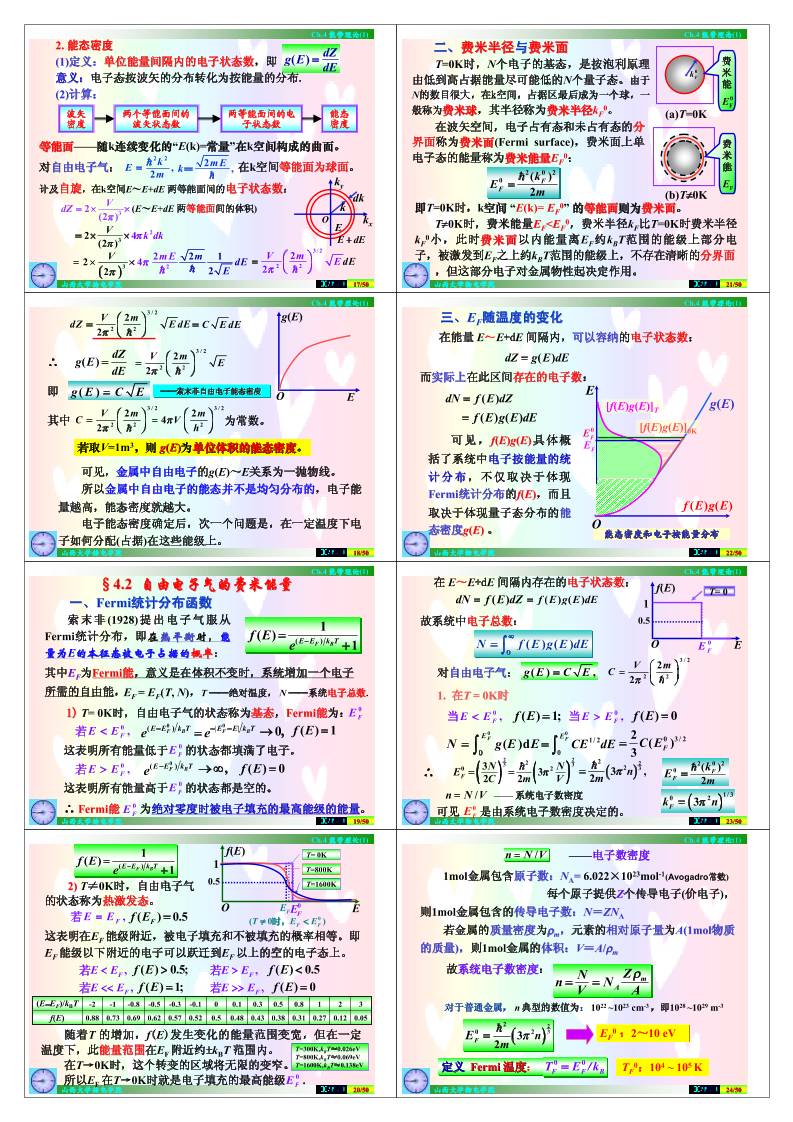 Ch.4 能带理论(1)
2. 能态密度
(1)定义：单位能量间隔内的电子状态数，即 g(E) = dZ/dE
意义：电子态按波矢的分布转化为按能量的分布.
(2)计算：
波矢密度 两个等能面间的波矢状态数 两等能面间的电子状态数 能态密度
等能面——随k连续变化的“E(k)=常量”在k空间构成的曲面。
对自由电子气： E = ℏ²k²/2m , k = √(2mE)/ℏ , 在k空间等能面为球面。
计及自旋，在k空间E～E+dE 两等能面间的电子状态数：
dZ = 2 × V/(2π)³ ×(E～E+dE 两等能面间的体积)
= 2× V/(2π)³ × 4πk²dk
= 2 × V/(2π)³ × 4π 2mE/ℏ² √(2m/ℏ²) 1/(2√E) dE = V/2π² (2m/ℏ²)^{3/2} √E dE
k_y dk k O k_x E E + dE
山西大学物电学院 17/50
Ch.4 能带理论(1)
dZ = V/2π² (2m/ℏ²)^{3/2} √E dE = C √E dE
∴ g(E) = dZ/dE = V/2π² (2m/ℏ²)^{3/2} √E
即 g(E) = C √E ——索末菲自由电子能态密度
g(E) O E
其中 C = V/2π² (2m/ℏ²)^{3/2} = 4πV (2m/h²)^{3/2} 为常数。
若取V=1m³，则 g(E)为单位体积的能态密度。
可见，金属中自由电子的g(E)～E关系为一抛物线。
所以金属中自由电子的能态并不是均匀分布的，电子能
量越高，能态密度就越大。
电子能态密度确定后，次一个问题是，在一定温度下电
子如何分配(占据)在这些能级上。
山西大学物电学院 18/50
Ch.4 能带理论(1)
§4.2 自由电子气的费米能量
一、Fermi统计分布函数
索末菲(1928)提出电子气服从
Fermi统计分布，即在热平衡时，能
量为E的本征态被电子占据的概率：
f(E) = 1/(e^{(E−E_F)/k_BT} + 1)
其中E_F为Fermi能，意义是在体积不变时，系统增加一个电子
所需的自由能，E_F = E_F(T, N)，T ——绝对温度， N ——系统电子总数.
1) T= 0K时，自由电子气的状态称为基态，Fermi能为：E_F^0
若E < E_F^0 , e^{(E−E_F^0)/k_BT} = e^{−(E_F^0−E)/k_BT} → 0, f(E) = 1
这表明所有能量低于E_F^0 的状态都填满了电子。
若E > E_F^0 , e^{(E−E_F^0)/k_BT} → ∞, f(E) = 0
这表明所有能量高于E_F^0 的状态都是空的。
∴ Fermi能 E_F^0 为绝对零度时被电子填充的最高能级的能量。
山西大学物电学院 19/50
Ch.4 能带理论(1)
f(E) = 1/(e^{(E−E_F)/k_BT} + 1)
f(E) 1 0.5 O E_F E_F^0 E
T= 0K
T=800K
T=1600K
(T ≠ 0时，E_F < E_F^0 )
2) T≠0K时，自由电子气
的状态称为热激发态。
若E = E_F , f(E_F) = 0.5
这表明在E_F 能级附近，被电子填充和不被填充的概率相等。即
E_F 能级以下附近的电子可以跃迁到E_F 以上的空的电子态上。
若E < E_F , f(E) > 0.5; 若E > E_F , f(E) < 0.5
若E << E_F , f(E) = 1; 若E >> E_F , f(E) = 0
(E−E_F)/k_BT -2 -1 -0.8 -0.5 -0.3 -0.1 0 0.1 0.3 0.5 0.8 1 2 3
f(E) 0.88 0.73 0.69 0.62 0.57 0.52 0.5 0.48 0.43 0.38 0.31 0.27 0.12 0.05
随着T 的增加，f(E)发生变化的能量范围变宽，但在一定
温度下，此能量范围在E_F 附近约±k_BT 范围内。
在T→0K时，这个转变的区域将无限的变窄。
所以E_F 在T→0K时就是电子填充的最高能级E_F^0 .
T=300K,k_BT≈0.026eV
T=800K,k_BT≈0.069eV
T=1600K,k_BT≈0.138eV
山西大学物电学院 20/50
Ch.4 能带理论(1)
二、费米半径与费米面
T=0K时，N个电子的基态，是按泡利原理
由低到高占据能量尽可能低的N个量子态。由于
N的数目很大，在k空间，占据区最后成为一个球，一
般称为费米球，其半径称为费米半径k_F^0。
在波矢空间，电子占有态和未占有态的分
界面称为费米面(Fermi surface)，费米面上单
电子态的能量称为费米能量E_F^0：
E_F^0 = ℏ²(k_F^0)²/2m
k_F^0 费米能 E_F^0
(a)T=0K
费米能 E_F
(b)T≠0K
即T=0K时，k空间 “E(k)= E_F^0” 的等能面则为费米面。
T≠0K时，费米能量E_F<E_F^0，费米半径k_F比T=0K时费米半径
k_F^0小，此时费米面以内能量离E_F约k_BT范围的能级上部分电
子，被激发到E_F之上约k_BT范围的能级上，不存在清晰的分界面
，但这部分电子对金属物性起决定作用。
山西大学物电学院 21/50
Ch.4 能带理论(1)
三、E_F随温度的变化
在能量 E～E+dE 间隔内，可以容纳的电子状态数：
dZ = g(E)dE
而实际上在此区间存在的电子数：
dN = f(E)dZ
= f(E)g(E)dE
可见，f(E)g(E)具体概
括了系统中电子按能量的统
计分布，不仅取决于体现
Fermi统计分布的f(E)，而且
取决于体现量子态分布的能
态密度g(E) 。
E [f(E)g(E)]_T g(E)
[f(E)g(E)]_0K
E_F^0
E_F
f(E)g(E)
O
能态密度和电子按能量分布
山西大学物电学院 22/50
Ch.4 能带理论(1)
在 E～E+dE 间隔内存在的电子状态数：
dN = f(E)dZ = f(E)g(E)dE
故系统中电子总数：
N = ∫₀^∞ f(E)g(E)dE
f(E) T= 0 1 0.5 O E_F^0 E
对自由电子气： g(E) = C √E , C = V/2π² (2m/ℏ²)^{3/2}
1. 在T = 0K时
当E < E_F^0 , f(E) = 1; 当E > E_F^0 , f(E) = 0
N = ∫₀^{E_F^0} g(E)dE = ∫₀^{E_F^0} CE^{1/2}dE = 2/3 C(E_F^0)^{3/2}
∴ E_F^0 = (3N/2C)^{2/3} = ℏ²/2m (3π² N/V)^{2/3} = ℏ²/2m (3π²n)^{2/3} , E_F^0 = ℏ²(k_F^0)²/2m
n = N/V —— 系统电子数密度 k_F^0 = (3π²n)^{1/3}
可见 E_F^0 是由系统电子数密度决定的。
山西大学物电学院 23/50
Ch.4 能带理论(1)
n = N/V ——电子数密度
1mol金属包含原子数：N_A= 6.022×10²³mol⁻¹(Avogadro常数)
每个原子提供Z个传导电子(价电子)，
则1mol金属包含的传导电子数：N＝ZN_A
若金属的质量密度为ρ_m，元素的相对原子量为A(1mol物质
的质量)，则1mol金属的体积：V＝A/ρ_m
故系统电子数密度： n = N/V = N_A Zρ_m/A
对于普通金属，n 典型的数值为： 10²² ~10²³ cm⁻³，即10²⁸ ~10²⁹ m⁻³
E_F^0 = ℏ²/2m (3π²n)^{2/3} E_F^0：2～10 eV
定义 Fermi 温度： T_F^0 = E_F^0/k_B T_F^0：10⁴ ~ 10⁵ K
山西大学物电学院 24/50